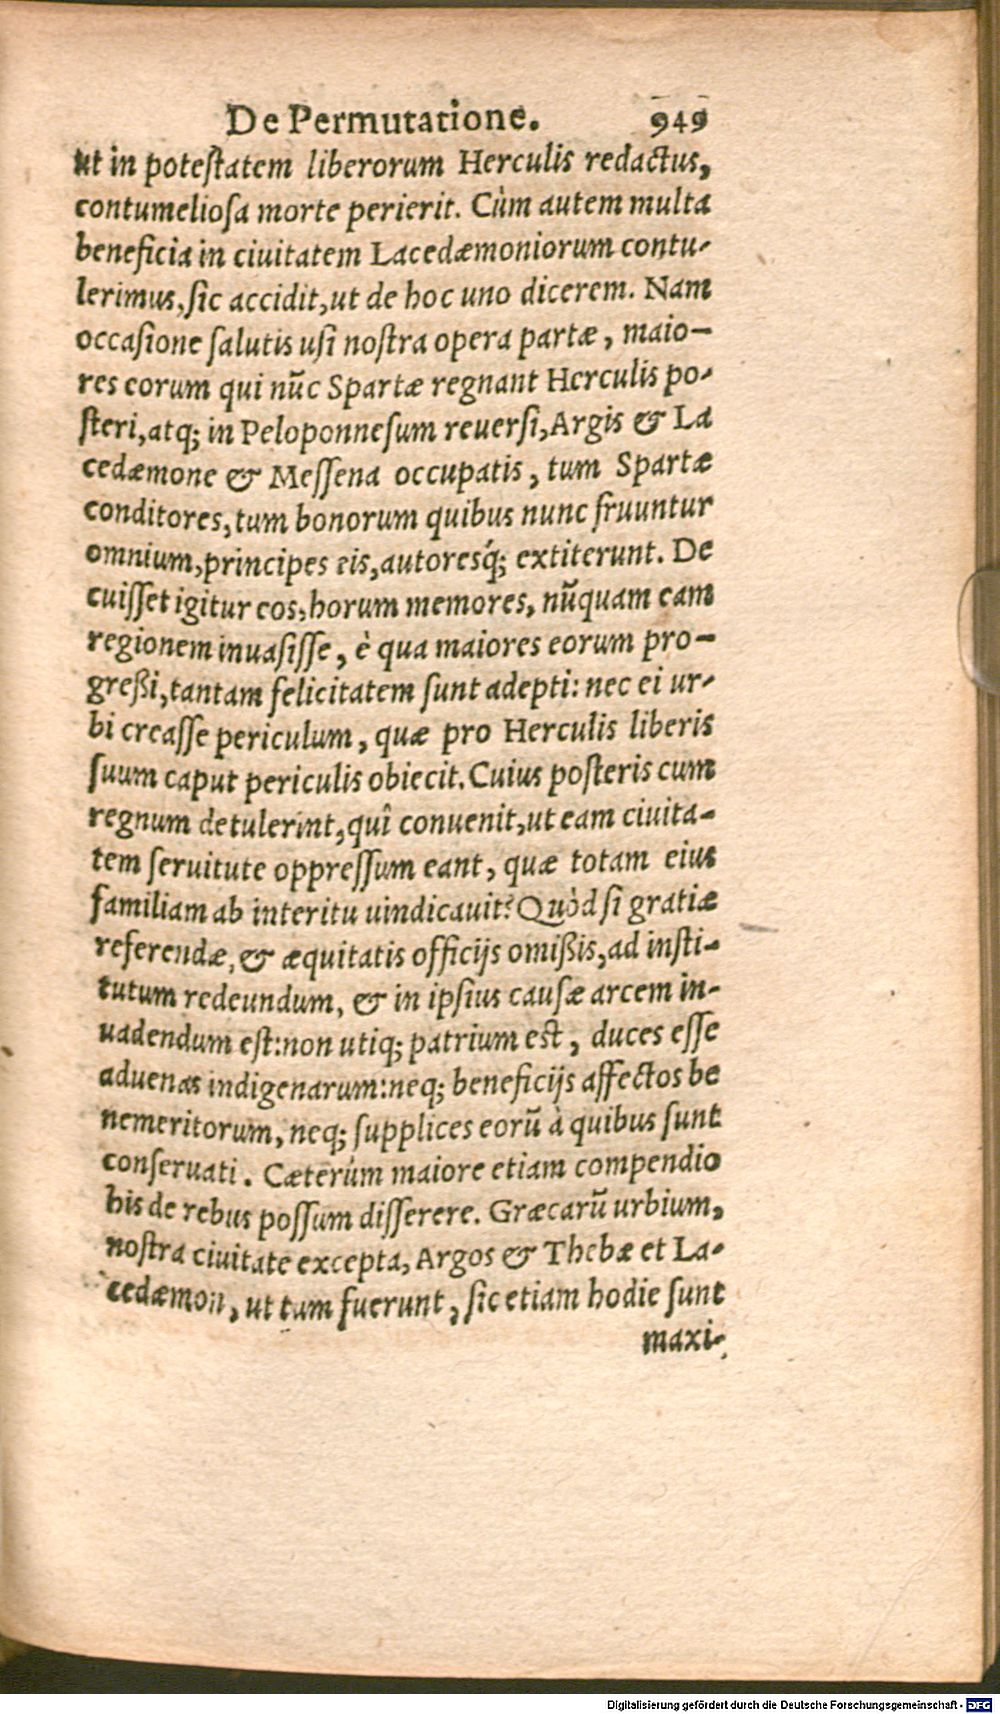 De Permutatione. 949
ut in poteſtatem liberorum Herculis redactus,
contumelioſa morte perierit. Cùm autem multa
beneficia in ciuitatem Lacedæmoniorum contu-
lerimus, ſic accidit, ut de hoc uno dicerem. Nam
occaſione ſalutis uſi noſtra opera partæ, maio-
res eorum qui nũc Spartæ regnant Herculis po-
ſteri, atq; in Peloponneſum reuerſi, Argis & La
cedæmone & Meſſena occupatis, tum Spartæ
conditores, tum bonorum quibus nunc fruuntur
omnium, principes eis, autoresq́; extiterunt. De
cuiſſet igitur eos, horum memores, nũquam eam
regionem inuaſiſſe, è qua maiores eorum pro-
greßi, tantam felicitatem ſunt adepti: nec ei ur-
bi creaſſe periculum, quæ pro Herculis liberis
ſuum caput periculis obiecit. Cuius poſteris cum
regnum detulerint, quî conuenit, ut eam ciuita-
tem ſeruitute oppreſſum eant, quæ totam eius
familiam ab interitu uindicauit? Quòd ſi gratiæ
referendæ, & æquitatis officijs omißis, ad inſti-
tutum redeundum, & in ipſius cauſæ arcem in-
uadendum eſt: non utiq; patrium eſt, duces eſſe
aduenas indigenarum: neq; beneficijs affectos be
nemeritorum, neq; ſupplices eorũ à quibus ſunt
conſeruati. Cæterùm maiore etiam compendio
his de rebus poſſum diſſerere. Græcarũ urbium,
noſtra ciuitate excepta, Argos & Thebæ et La-
cedæmon, ut tum fuerunt, ſic etiam hodie ſunt
maxi-
Digitalisierung gefördert durch die Deutsche Forschungsgemeinschaft - DFG